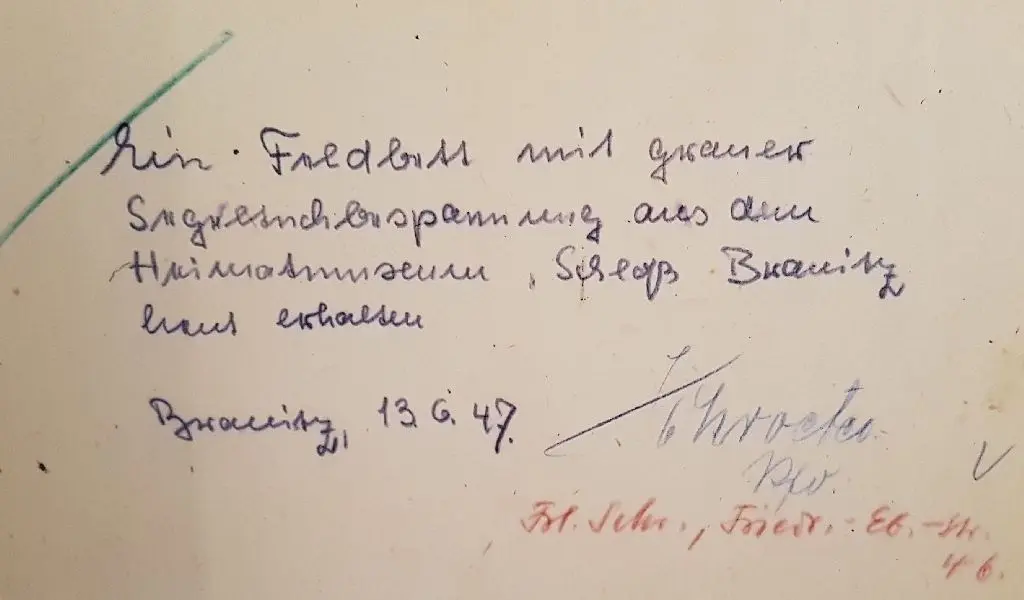 Ein Feldbett mit grauer
Segeltuchbespannung aus dem
Heimatmuseum, Schloß Branitz
heut erhalten
Branitz, 13.6.47.
Frl. Schr., Friedr.-Eb.-Str.
46.